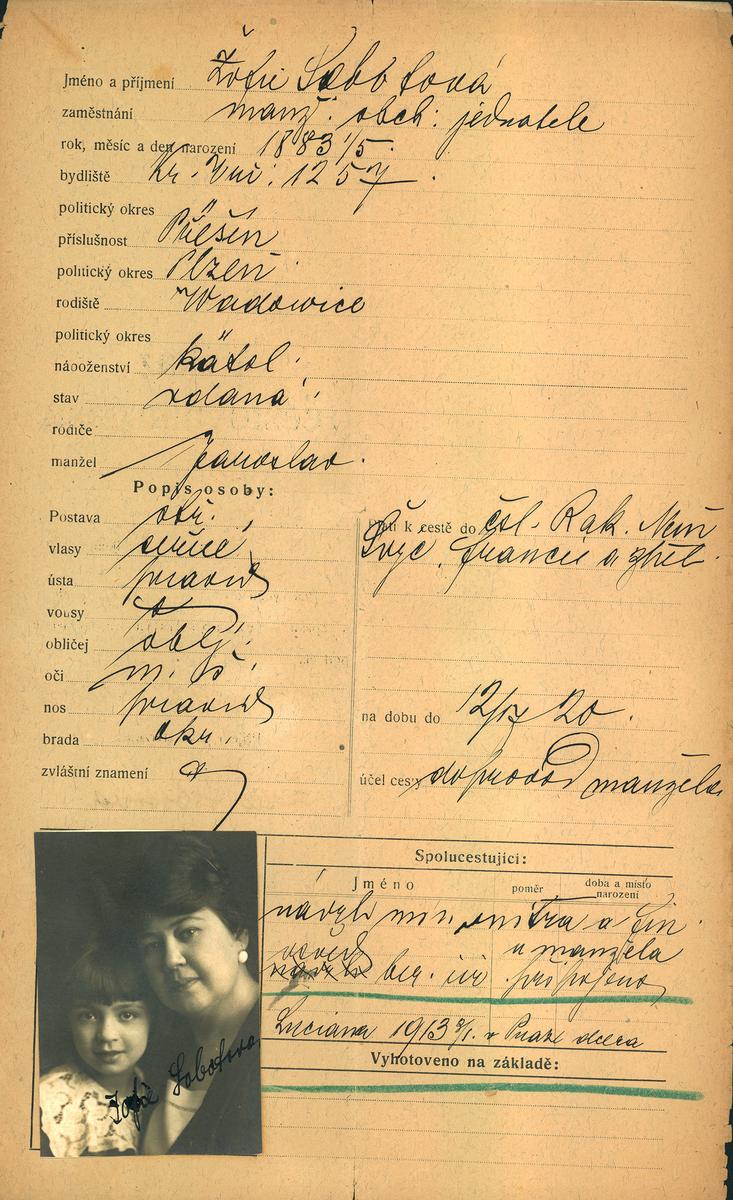 Jméno a příjmení Žofie Sobotová
zaměstnání manž. obch. jednatele
rok, měsíc a den narození 1883 1/5.
bydliště Kr. Vin. 1257
politický okres "
příslušnost Plešín
politický okres Plzeň
rodiště Wadowice
politický okres "
náboženství katol.
stav vdaná
rodiče
manžel Jaroslav.
Popis osoby:
Postava stř.
vlasy
ústa pravid
vousy
obličej obly.
oči m. š.
nos pravid
brada okr.
zvláštní znamení
Platí k cestě do čsl. Rak. Něm
Švýc. Francie a zpět.
na dobu do 12/ 20.
účel cesty doprovod manžela
Spolucestující:
Jméno poměr doba a místo narození
návrh min. vnitra a fin.
u manžela
ber. připojeno
Luciana 1913 v Praze dcera
Vyhotoveno na základě:
Žofie Sobotova